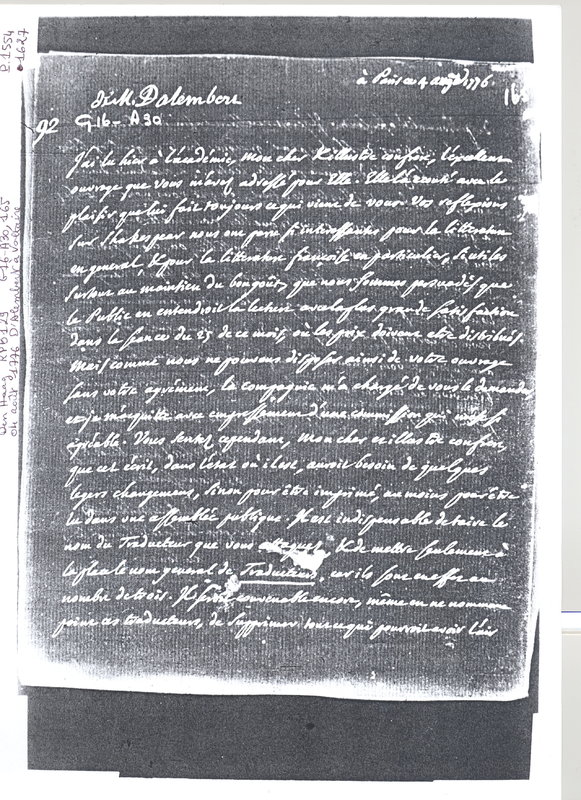 P.1554
•1627
Den Haag RPB 129 G16-A30, 165
04 août 1776 D'Alembert à Voltaire
à Paris ce 4 aoust 1776.
de M. Dalembert
16
92 G16-A30
J'ai lu hier à l'académie, mon cher & illustre confrere, l'excellent
ouvrage que vous m'avez adressé pour Elle. Elle l'a écouté avec le
plaisir que lui fait toujours ce qui vient de vous. Vos reflexions
sur Shakespear nous ont paru si interessantes pour la litterature
en general, & pour la litterature françoise en particulier, si utiles
surtout au maintien du bon goût, que nous sommes persuadés que
le Public en entendroit la lecture avec la plus grande satisfaction
dans la seance du 25 de ce mois, où les prix doivent etre distribués.
Mais comme nous ne pouvons disposer ainsi de votre ouvrage
sans votre agrément, la compagnie m'a chargé de vous le demander
et je m'acquitte avec empressement d'une commission qui m'est si
agréable. Vous sentez cependant, mon cher et illustre confrere,
que cet écrit, dans l'état où il est, auroit besoin de quelques
legers changemens, sinon pour être imprimé, au moins pour être
lu dans une assemblée publique. Il est indispensable de taire le
nom du Traducteur que vous attaquez, & de mettre seulement à
la place le nom general de Traducteurs, car ils sont en effet au
nombre de trois. Il seroit convenable encore, même en ne nommant
point ces traducteurs, de supprimer tout ce qui pourroit avoir l'air